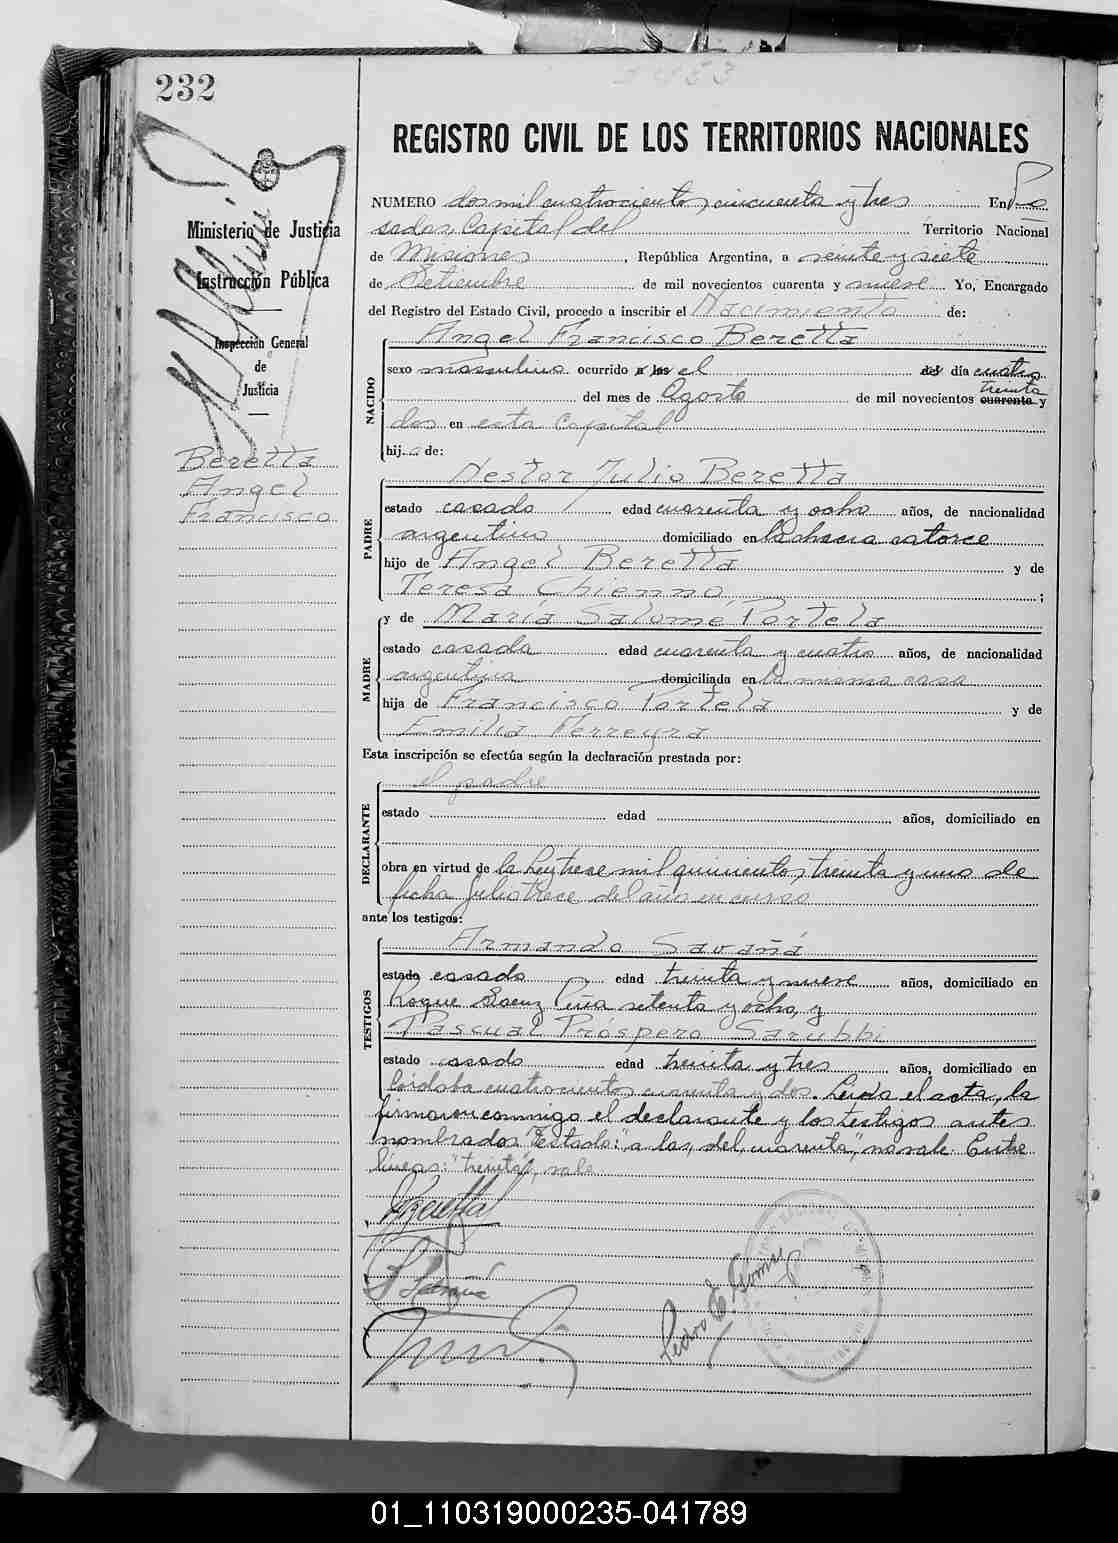 232
REGISTRO CIVIL DE LOS TERRITORIOS NACIONALES
Ministerio de Justicia
Instrucción Pública
Inspección General
de
Justicia
Beretta
Angel
Francisco
NUMERO dos mil cuatrocientos cincuenta y tres En Po
sadas, Capital del Territorio Nacional
de Misiones, República Argentina, a veinte y siete
de Setiembre de mil novecientos cuarenta y nueve Yo, Encargado
del Registro del Estado Civil, procedo a inscribir el Nacimiento de:
NACIDO
Angel Francisco Beretta
sexo masculino ocurrido a las el del día cuatro
treinta
del mes de Agosto de mil novecientos cuarenta y
dos en esta Capital
hijo de:
PADRE
Nestor Julio Beretta
estado casado edad cuarenta y ocho años, de nacionalidad
argentino domiciliado en la chacra catorce
hijo de Angel Beretta y de
Teresa Chienno;
MADRE
y de María Salomé Portela
estado casada edad cuarenta y cuatro años, de nacionalidad
argentina domiciliada en la misma casa
hija de Francisco Portela y de
Emilia Ferreyra
Esta inscripción se efectúa según la declaración prestada por:
DECLARANTE
el padre
estado edad años, domiciliado en
obra en virtud de la Ley trece mil quinientos treinta y uno de
fecha Julio trece del año en curso
ante los testigos:
TESTIGOS
Armando Savañá
estado casado edad treinta y nueve años, domiciliado en
Roque Saenz Peña setenta y ocho, y
Pascual Próspero Sarubbi
estado casado edad treinta y tres años, domiciliado en
Córdoba cuatrocientos cuarenta y dos. Leída el acta, la
firmaron conmigo el declarante y los testigos antes
nombrados. Testado: "a las, del, cuarenta", no vale. Entre
líneas: "treinta", vale
Pedro E. Gomez
01_110319000235-041789